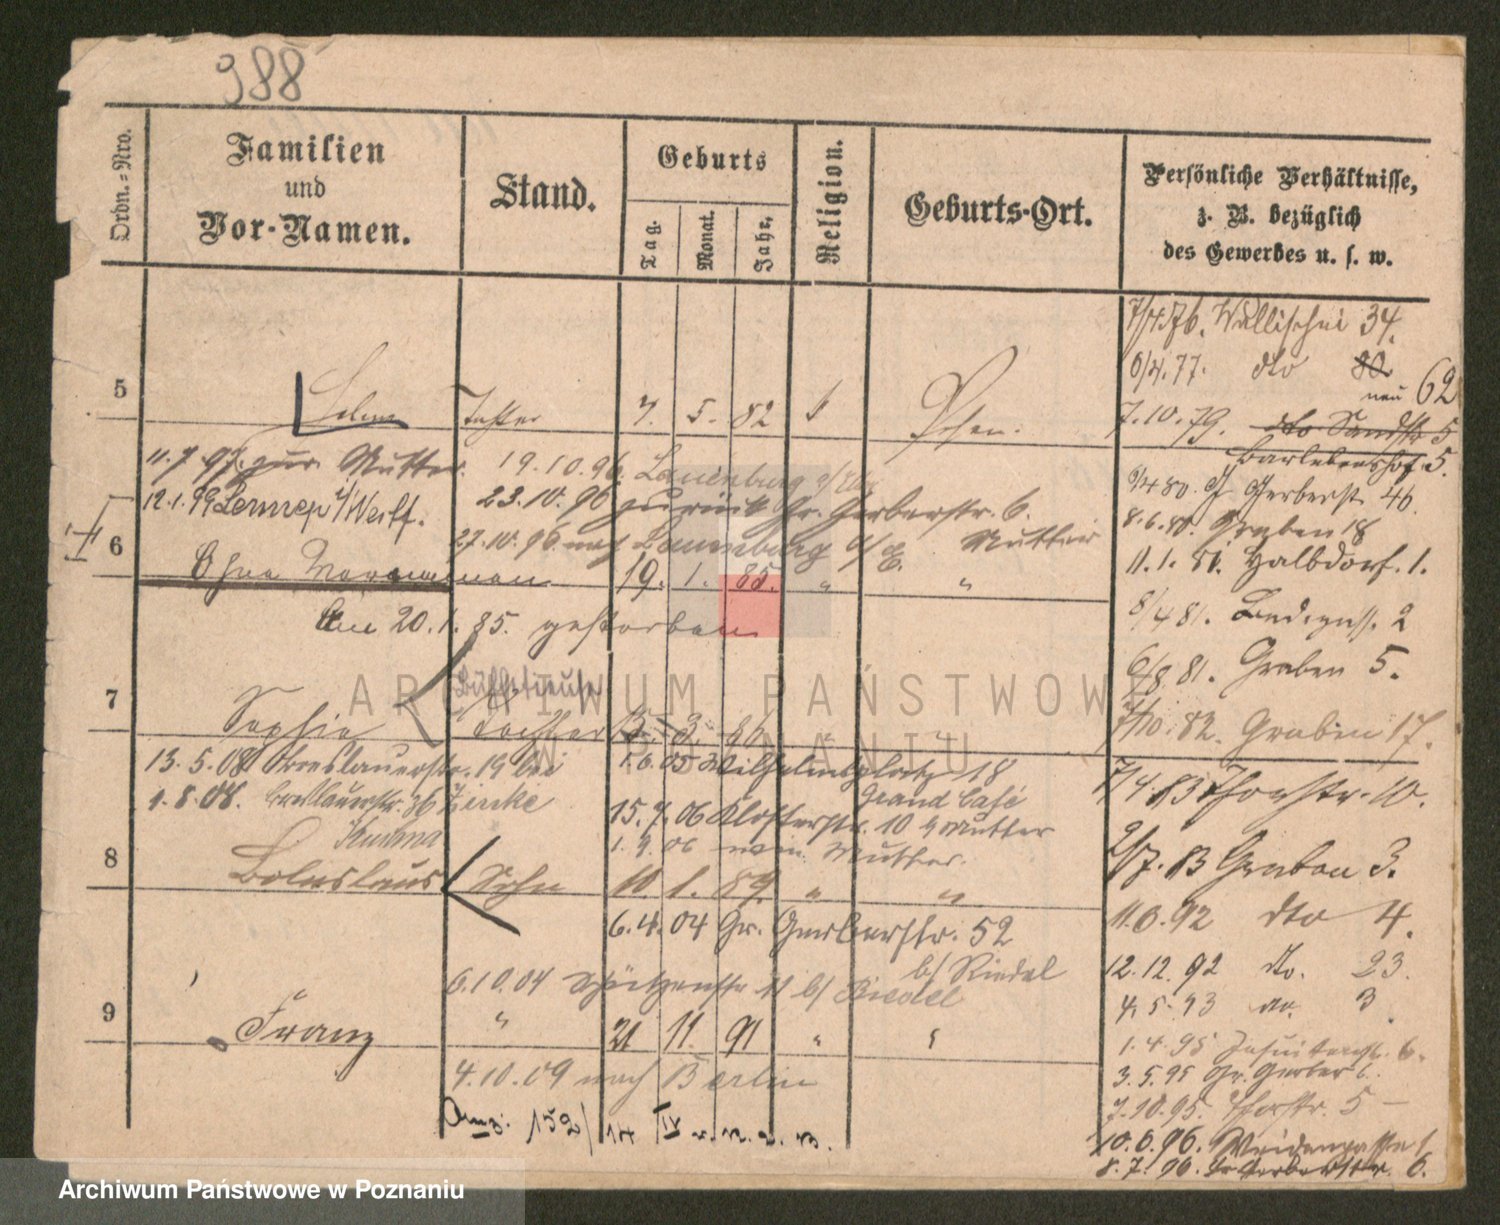 988
Ordn.-Nro.
Familien
und
Vor-Namen.
Stand.
Geburts
Tag.
Monat.
Jahr.
Religion.
Geburts-Ort.
Persönliche Verhältnisse,
z. B. bezüglich
des Gewerbes u. s. w.
7/4.76. Wallischei 34.
6/4.77. dto 80
neu 62
5
Tochter 7. 5. 82 Posen.
7.10.79. dto Sandstr 5
Bartlebenshof. 5.
11.7.97. zur Mutter. 19.10.96. Lauenburg a/Elbe
9/4 80. Gr Gerberst. 46
12.1.99 Lennep i/Westf. 23.10.96 zurück Gr. Gerberstr. 6.
8.6.80. Graben 18
27.10.96 nach Lauenburg a/E. Mutter
11.1.81. Halbdorf. 1.
6
Ohne Vornamen 19. 1. 85. " "
8/4 81. 2
Am 20.1.85. gestorben
6/8 81. Graben 5.
7
Büffetieuse
Sophie Tochter 15. 3. 86 " "
7/10.82. Graben 17.
13.5.08 Breslauerstr. 19 bei 1.6.05 Wilhelmsplatz 18
Grand Café
7/4 83 Thorstr. 10.
1.8.08. Breslauerstr. 36 Zinke 15.7.06 Klosterstr. 10 b/Mutter
1.9.06 Mutter.
2/7. 83 Graben 3.
8
Boleslaus Sohn 10. 1. 89. " "
11.6.92 dto 4.
6.4.04 Gr. Gerberstr. 52
b/ Riedel
12.12.92 do. 23.
6.10.04 Schützenstr 11 b/ Riedel
4.5.93 do. 3
9
Franz " 21 11. 91 " "
1.4.95 Jesuitengs. 6.
3.5.95 Gr. Gerber 6.
4.10.09 nach Berlin
7.10.95. Thorstr. 5
10.6.96. Weidengasse 1
8.7.96. Gr Gerberstr. 6.
ARCHIWUM PAŃSTWOWE
W POZNANIU
Archiwum Państwowe w Poznaniu